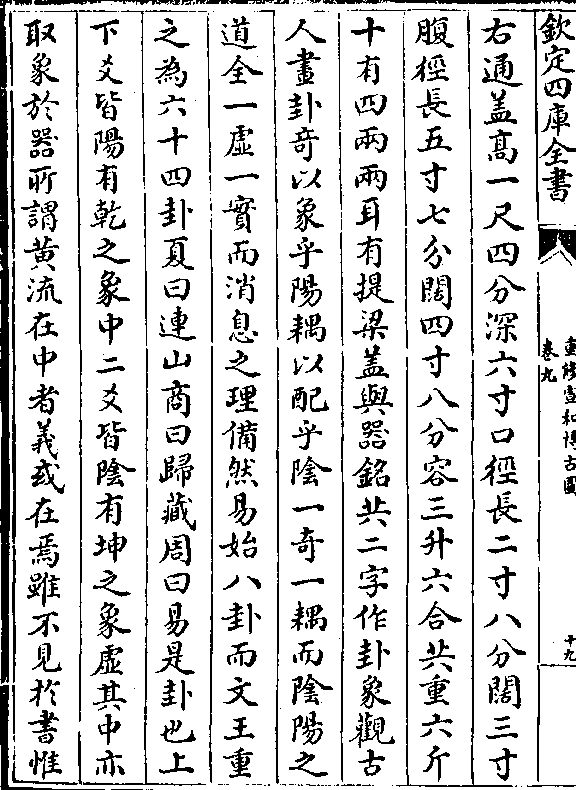 欽定四庫全書
重修宣和博古圖
卷九
十九
右通盖髙一尺四分深六寸口徑長二寸八分闊三寸
腹徑長五寸七分闊四寸八分容三升六合共重六斤
十有四兩兩耳有提梁盖與器銘共二字作卦象觀古
人畫卦奇以象乎陽耦以配乎陰一奇一耦而陰陽之
道全一虛一實而消息之理備然易始八卦而文王重
之為六十四卦夏曰連山商曰歸藏周曰易是卦也上
下爻皆陽有乾之象中二爻皆陰有坤之象虛其中亦
取象於器所謂黄流在中者義或在焉雖不見於書惟